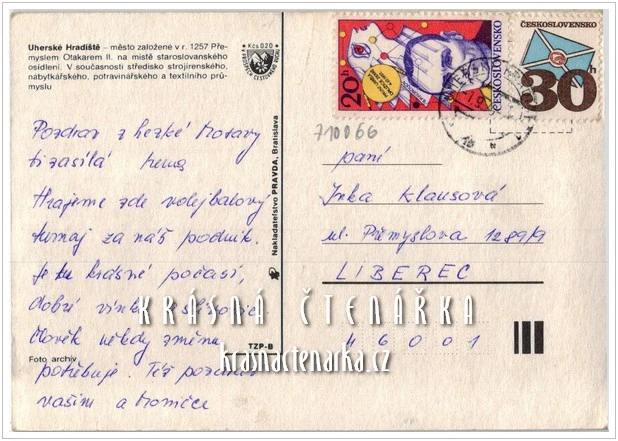 Uherské Hradiště – město založené v r. 1257 Pře-
myslem Otakarem II. na místě staroslovanského
osídlení. V současnosti středisko strojírenského,
nábytkářského, potravinářského a textilního prů-
myslu
Kčs 0,20
Pozdrav z hezké Moravy
ti zasílá
Hrajeme zde volejbalový
turnaj za náš podnik.
Je tu krásné počasí,
dobré vínko,
člověk někdy změnu
potřebuje. Též pozdrav
vašim a mamce
Foto archiv
TZP-B
Nakladatelství PRAVDA, Bratislava
20h
ČESKOSLOVENSKO
ČESKOSLOVENSKO
30h
710066
paní
Inka Klausová
ul. Přemyslova 1289/9
LIBEREC
46001
KRÁSNÁ ČTENÁŘKA
krasnactenarka.cz